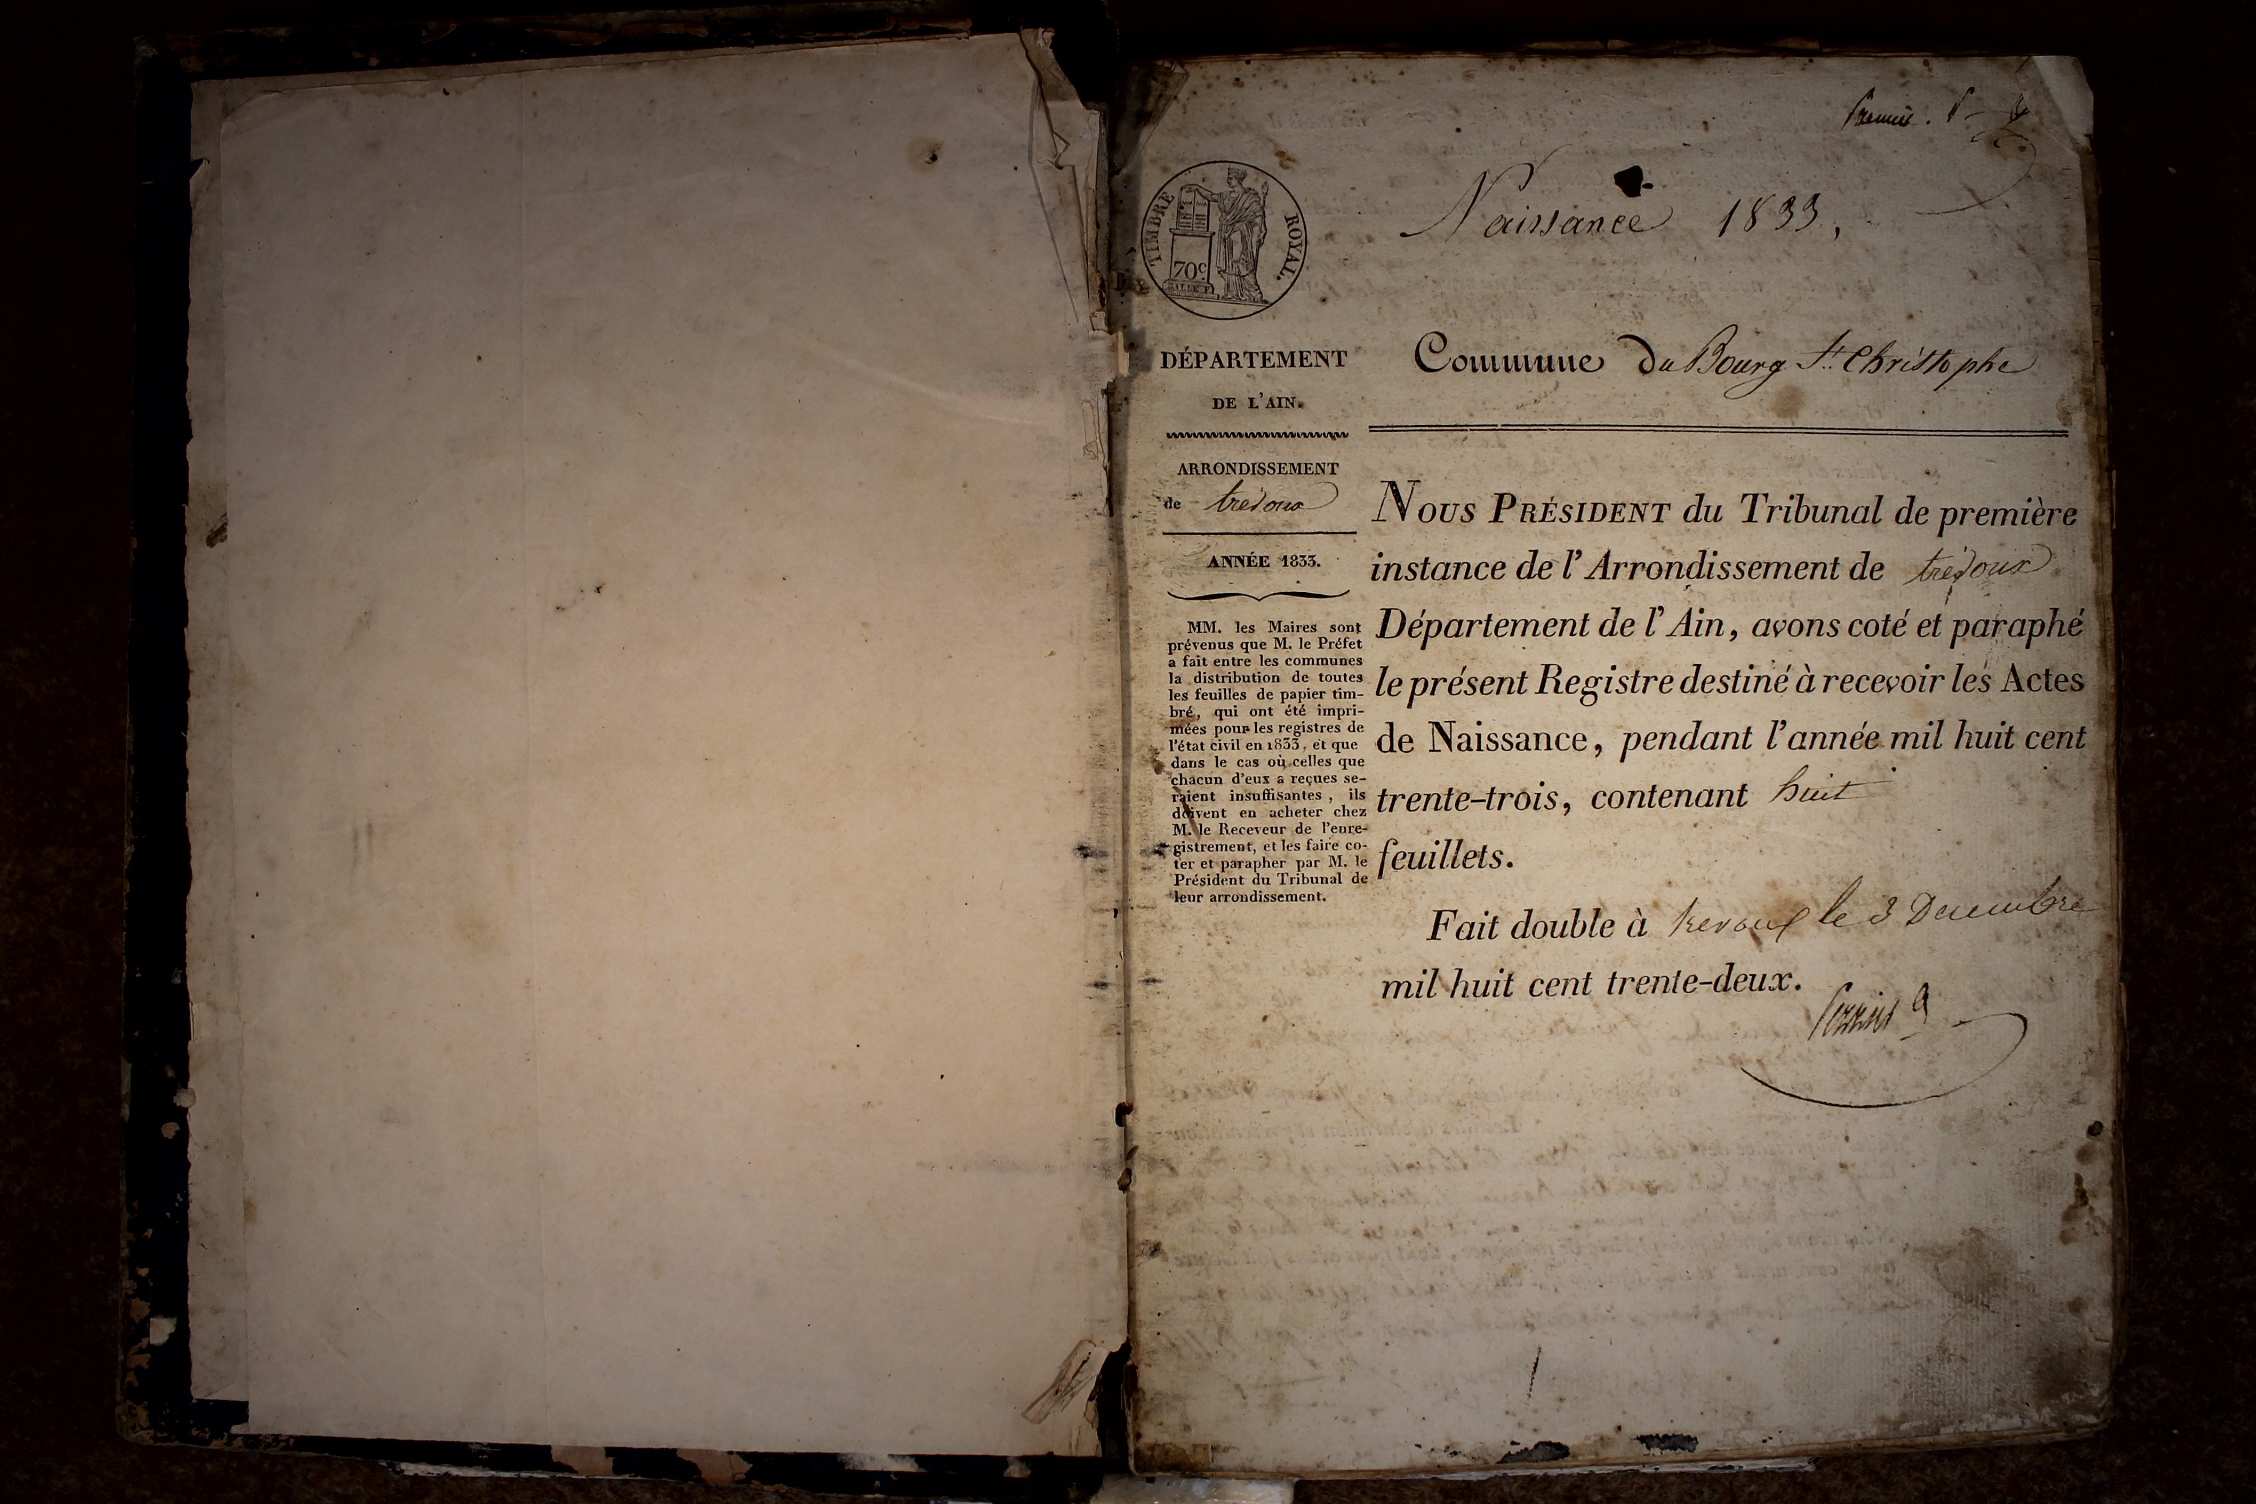 Naissance 1833,
TIMBRE ROYAL.
70c
DÉPARTEMENT
DE L'AIN.
ARRONDISSEMENT
de trévoux
ANNÉE 1833.
MM. les Maires sont
prévenus que M. le Préfet
a fait entre les communes
la distribution de toutes
les feuilles de papier tim-
bré, qui ont été impri-
mées pour les registres de
l'état civil en 1833, et que
dans le cas où celles que
chacun d'eux a reçues se-
raient insuffisantes, ils
doivent en acheter chez
M. le Receveur de l'enre-
gistrement, et les faire co-
ter et parapher par M. le
Président du Tribunal de
leur arrondissement.
Commune du Bourg St. Christophe
NOUS PRÉSIDENT du Tribunal de première
instance de l'Arrondissement de trévoux
Département de l'Ain, avons coté et paraphé
le présent Registre destiné à recevoir les Actes
de Naissance, pendant l'année mil huit cent
trente-trois, contenant huit
feuillets.
Fait double à trevoux le 3 Decembre
mil huit cent trente-deux.